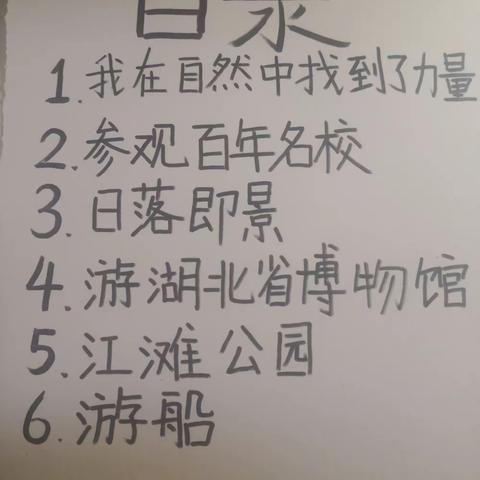 目录
1.我在自然中找到了力量
2.参观百年名校
3.日落即景
4.游湖北省博物馆
5.江滩公园
6.游船